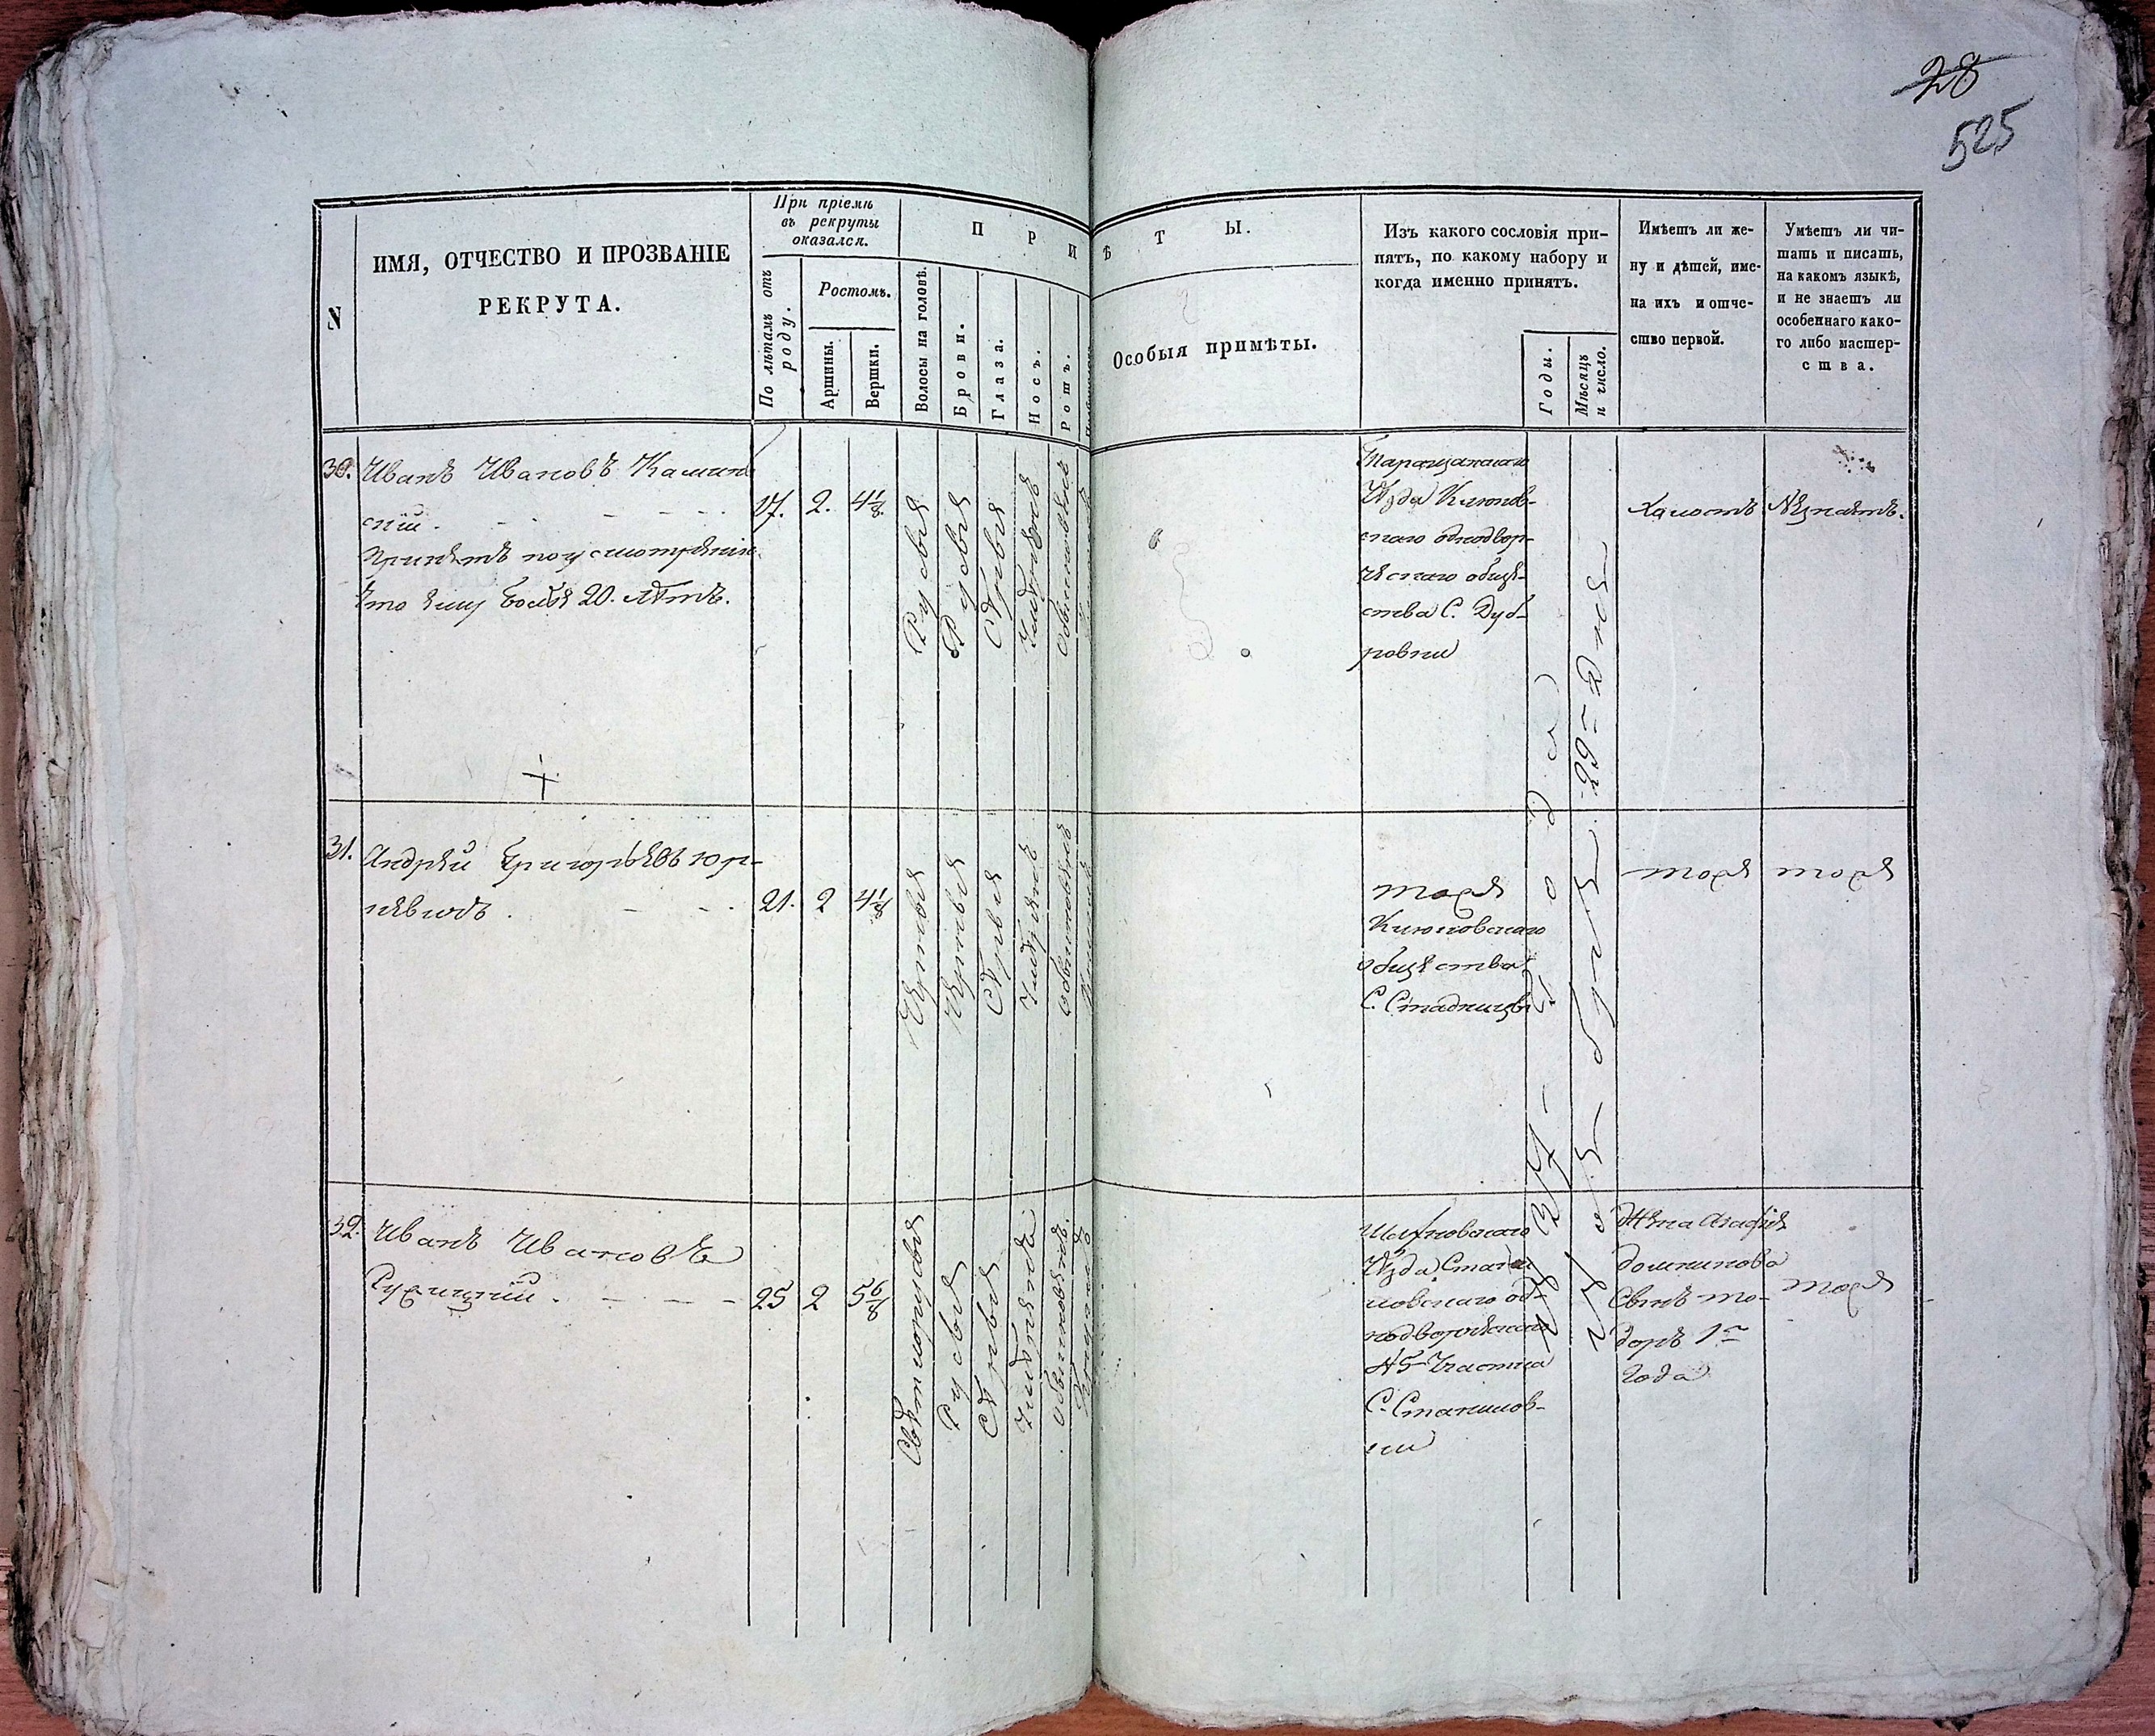 28
525
N
ИМЯ, ОТЧЕСТВО И ПРОЗВАНІЕ
РЕКРУТА.
При пріемѣ
въ рекруты
оказался.
По лѣтамъ отъ
роду.
Ростомъ.
Аршины.
Вершки.
П Р И
Волосы на головѣ.
Брови.
Глаза.
Носъ.
Ротъ.
Ѣ Т Ы.
Особыя примѣты.
Изъ какого сословія при-
нятъ, по какому набору и
когда именно принятъ.
Годы.
Мѣсяцъ
и число.
Имѣетъ ли же-
ну и дѣтей, име-
на ихъ и отче-
ство первой.
Умѣетъ ли чи-
тать и писать,
на какомъ языкѣ,
и не знаетъ ли
особеннаго како-
го либо мастер-
ства.
30.
Иванъ Ивановъ Камин
скій.
Принятъ по усмотренію
что ему болѣе 20. лѣтъ.
17.
2.
4 1/8.
Русыя
Русыя
Сѣрыя
Умѣренъ
Обыкновенъ
Таращанскаго
Уѣзда
скаго однодвор-
ческаго обще-
ства С. Дуб-
ровки
29го Дня
Холостъ
Незнаетъ.
31.
Андрей Григорьевъ
21.
2
4 1/8
Сѣрыя
Умѣренъ
Обыкновенъ
тоже
общества
С. Стадницы
года
тоже
тоже
32.
Иванъ Ивановъ
Ружицкій.
25
2
5 6/8
Свѣтлорусыя
Русыя
Сѣрыя
Умѣренъ
Обыкновенъ.
Уѣзда
новскаго од-
нодворческаго
№ 5 Участка
С. Станилов-
ки
Жена Агафія
Сынъ То-
доръ 1го
года
тоже